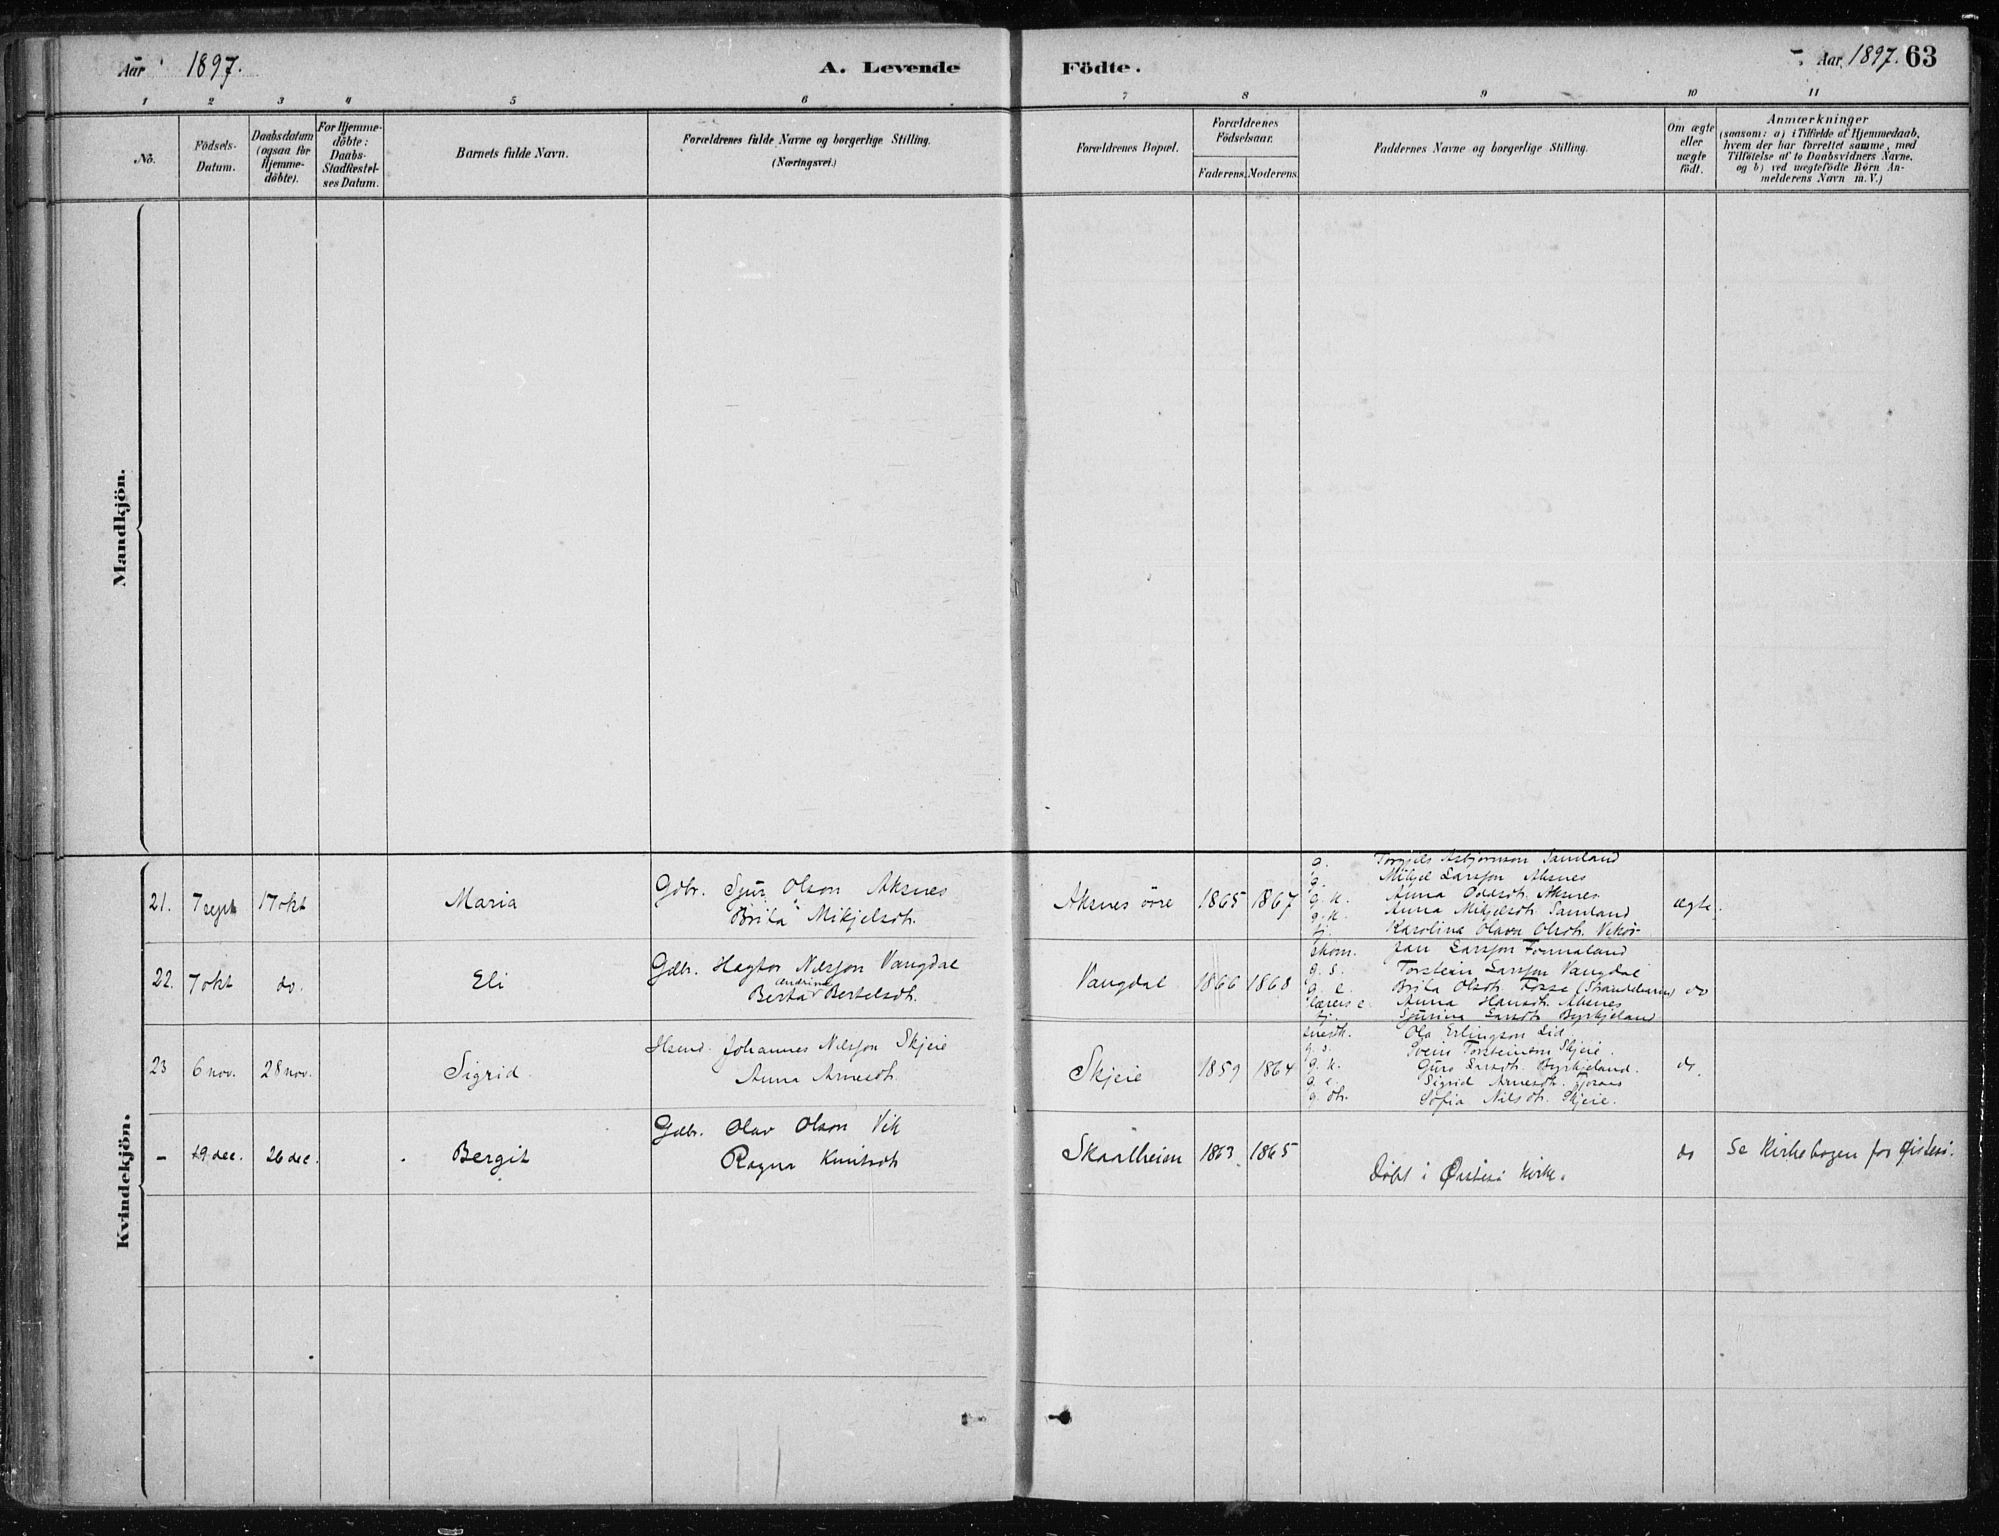 Aar 1897. A. Levende Födte. Aar 1897. 63
1 2 3 4 5 6 7 8 9 10 11
No.
Födsels-
Datum.
Daabsdatum
(ogsaa for
Hjemme-
döbte).
For Hjemme-
döbte:
Daabs-
Stadfæstel-
ses Datum.
Barnets fulde Navn.
Forældrenes fulde Navne og borgerlige Stilling.
(Næringsvei.)
Forældrenes Bopæl.
Forældrenes
Födselsaar.
Faderens. Moderens.
Faddernes Navne og borgerlige Stilling.
Om ægte
eller
uægte
födt.
Anmærkninger
(saasom: a) i Tilfælde af Hjemmedaab,
hvem der har forrettet samme, med
Tilföielse af to Daabsvidners Navne.
og b) ved uægtefödte Börn An-
melderens Navn m. V.)
Mandkjön.
Kvindekjön.
21. 7 sept 17 okt Maria
Gdbr. Sjur Olson Aksnes
Brita Mikjelsdt.
Aksnes övre 1865 1867
g. Torgjels Asbjornson Samland
g. Mikjel Larsson Aksnes
g. k. Anna Oddsdt. Aksnes
g. k. Anna Mikjelsdt. Samland
tj. Karolina Olava Olsdt. Vikör
ægte.
22. 7 okt do. Eli
Gdbr. Hagtor Nilsson Vangdal
Berta Bertelsdt.
Vangdal 1866 1868
skom. Jan Larsson Fonnaland
g. s. Torstein Larsson Vangdal
g. e. Brita Olsdt. Fosse (Strandebarm)
lærers e. Anna Hansdt. Aksnes
tj. Sjurina Larsdt. Byrkjeland
do
23 6 nov. 28 nov. Sigrid
Hsmd. Johannes Nilsson Skjeie
Anna Arnesdt.
Skjeie 1859 1864
Ola Erlingson Lid
g. s. Svein Torsteinson Skjeie.
g. k. Guro Larsdt. Byrkjeland.
g. e. Sigrid Arnesdt.
g. dtr. Sofia Nilsdt. Skjeie.
do.
- 19 dec. 26 dec. Bergit
Gdbr. Olav Olson Vik
Ragna Knutsdt
Skaalheien 1863 1865
Döbt i Östesö kirke.
do Se Kirkebogen for Östesö.